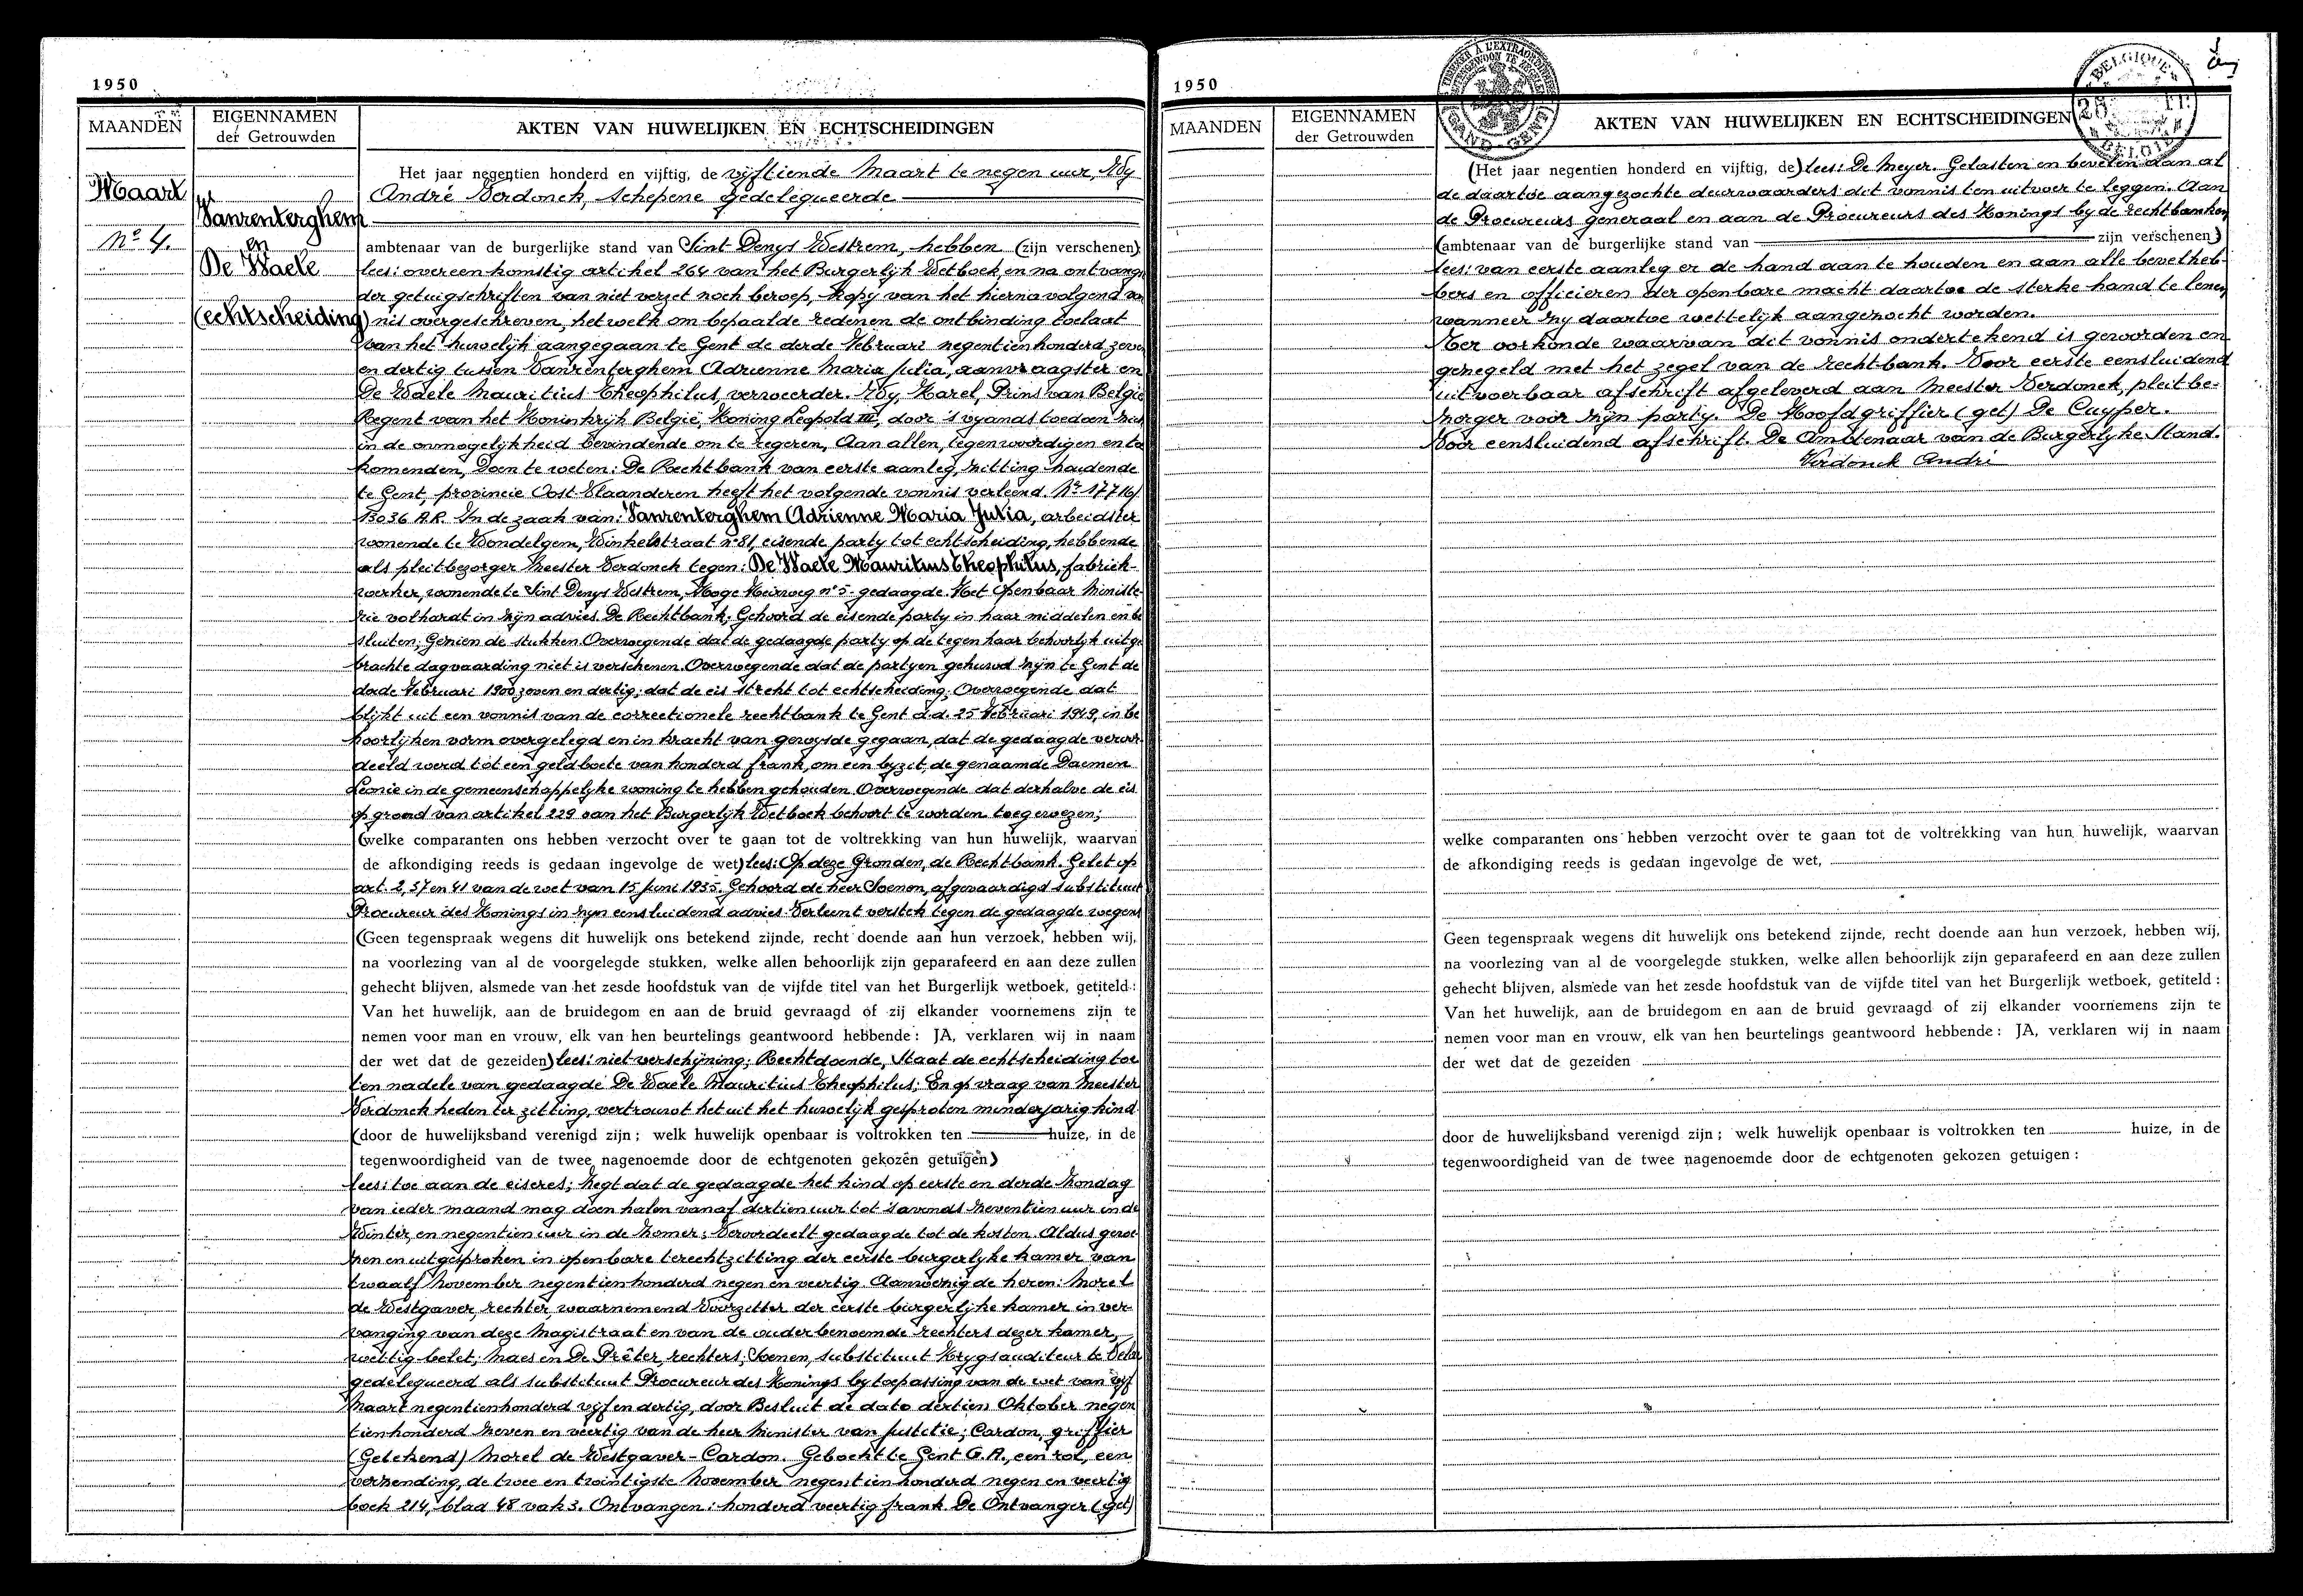 1950
MAANDEN
EIGENNAMEN
der Getrouwden
AKTEN VAN HUWELIJKEN EN ECHTSCHEIDINGEN
Maart
No 4.
Vanrenterghem
en
De Waele
(echtscheiding)
Het jaar negentien honderd en vijftig, de vijftiende Maart te negen uur, Wy
André Verdonck, schepene gedelegueerde
ambtenaar van de burgerlijke stand van Sint Denys Westrem, hebben (zijn verschenen)
lees: overeenkomstig artikel 264 van het Burgerlyk Wetboek, en na ontvangst
der getuigschriften van niet verzet noch beroep, kopij van het hierna volgend vo
nis overgeschreven, hetwelk om bepaalde redenen de ontbinding toelaat
van het huwelijk aangegaan te Gent de derde Februari negentienhonderd zeven
en dertig tussen Vanrenterghem Adrienne Maria Julia, aanvraagster en
De Waele Mauritius Theophilus, verweerder. Wy, Karel, Prins van België
Regent van het Koninkrijk België, Koning Leopold III, door 's vyands toedoen zich
in de onmogelijkheid bevindende om te regeren, Aan allen, tegenwoordigen en toe
komenden, Doen te weten: De Rechtbank van eerste aanleg, zitting houdende
te Gent, provincie Oost-Vlaanderen heeft het volgende vonnis verleend. No 17716/
13036 A.R. In de zaak van: Vanrenterghem Adrienne Maria Julia, arbeidster
wonende te Wondelgem, Winkelstraat no 81, eisende party tot echtscheiding, hebbende
als pleitbezorger Meester Verdonck tegen: De Waele Mauritius Theophilus, fabriek-
werker, wonende te Sint Denys Westrem, Hoge Heirweg no 5- gedaagde. Het Openbaar Ministe-
rie volhardt in zijn advies. De Rechtbank; Gehoord de eisende party in haar middelen en be
sluiten; Gezien de stukken. Overwegende dat de gedaagde party op de tegen haar behoorlyk uitge
brachte dagvaarding niet is verschenen. Overwegende dat de partyen gehuwd zijn te Gent de
derde Februari 1900 zeven en dertig; dat de eis strekt tot echtscheiding; Overwegende dat
blijkt uit een vonnis van de correctionele rechtbank te Gent d.d. 25 Februari 1949, in be
hoorlijken vorm overgelegd en in kracht van gewysde gegaan, dat de gedaagde veroor-
deeld werd tot een geldboete van honderd frank, om een byzit, de genaamde Daemen
Leonie in de gemeenschappelyke woning te hebben gehouden. Overwegende dat derhalve de eis
op grond van artikel 229 van het Burgerlyk Wetboek behoort te worden toegewezen;
(welke comparanten ons hebben verzocht over te gaan tot de voltrekking van hun huwelijk, waarvan
de afkondiging reeds is gedaan ingevolge de wet) lees: Op deze Gronden, de Rechtbank. Gelet op
art. 2, 37 en 41 van de wet van 15 Juni 1935. Gehoord de heer Soenen, afgevaardigd substituut
Procureur des Konings in zyn eensluidend advies Verleent verstek tegen de gedaagde wegens
(Geen tegenspraak wegens dit huwelijk ons betekend zijnde, recht doende aan hun verzoek, hebben wij,
na voorlezing van al de voorgelegde stukken, welke allen behoorlijk zijn geparafeerd en aan deze zullen
gehecht blijven, alsmede van het zesde hoofdstuk van de vijfde titel van het Burgerlijk wetboek, getiteld:
Van het huwelijk, aan de bruidegom en aan de bruid gevraagd of zij elkander voornemens zijn te
nemen voor man en vrouw, elk van hen beurtelings geantwoord hebbende: JA, verklaren wij in naam
der wet dat de gezeiden) lees: niet-verschijning; Rechtdoende, Staat de echtscheiding toe
ten nadele van gedaagde De Waele Mauritius Theophilus; En op vraag van Meester
Verdonck heden ter zitting, vertrouwt het uit het huwelijk gesproten minderjarig kind
(door de huwelijksband verenigd zijn; welk huwelijk openbaar is voltrokken ten huize, in de
tegenwoordigheid van de twee nagenoemde door de echtgenoten gekozen getuigen)
lees: toe aan de eiseres; Zegt dat de gedaagde het kind op eerste en derde Zondag
van ieder maand mag doen halen vanaf dertien uur tot 's avonds zeventien uur in de
Winter, en negentien uur in de Zomer; Veroordeelt gedaagde tot de kosten. Aldus gewe-
zen en uitgesproken in openbare terechtzitting der eerste burgerlyke kamer van
twaalf November negentienhonderd negen en veertig. Aanwezig de heren: Morel
de Westgaver, rechter, waarnemend Voorzitter der eerste burgerlyke kamer in ver-
vanging van deze magistraat en van de ouderbenoemde rechters dezer kamer,
wettig belet; Maes en De Prêter, rechters; Soenen, substituut Krygsauditeur te Velde
gedelegueerd als substituut Procureur des Konings by toepassing van de wet van vyf
Maart negentienhonderd vyf en dertig, door Besluit de dato dertien Oktober negen
tienhonderd zeven en veertig van de heer Minister van Justitie; Cardon, griffier
(Getekend) Morel de Westgaver - Cardon. Geboekt te Gent G.A., een rol, een
verzending, de twee en twintigste November negentienhonderd negen en veertig
boek 214, blad 48 vak 3. Ontvangen: honderd veertig frank De Ontvanger (get)
1950
MAANDEN
EIGENNAMEN
der Getrouwden
AKTEN VAN HUWELIJKEN EN ECHTSCHEIDINGEN
GAND-GENT
BELGIQUE
BELGIE
(Het jaar negentien honderd en vijftig, de) lees: De Meyer. Gelasten en bevelen aan al
de daartoe aangezochte deurwaarders dit vonnis ten uitvoer te leggen. Aan
de Procureurs generaal en aan de Procureurs des Konings by de rechtbanken
(ambtenaar van de burgerlijke stand van zijn verschenen)
lees: van eerste aanleg er de hand aan te houden en aan alle bevelheb-
bers en officieren der openbare macht daartoe de sterke hand te lenen
wanneer zy daartoe wettelijk aangezocht worden.
Ter oorkonde waarvan dit vonnis ondertekend is geworden en
gezegeld met het zegel van de rechtbank. Voor eerste eensluidend
uitvoerbaar afschrift afgeleverd aan Meester Verdonck, pleitbe-
zorger voor zijn party. De Hoofdgriffier (get) De Cuyper.
Voor eensluidend afschrift. De Ambtenaar van de Burgerlyke Stand.
Verdonck André
welke comparanten ons hebben verzocht over te gaan tot de voltrekking van hun huwelijk, waarvan
de afkondiging reeds is gedaan ingevolge de wet,
Geen tegenspraak wegens dit huwelijk ons betekend zijnde, recht doende aan hun verzoek, hebben wij,
na voorlezing van al de voorgelegde stukken, welke allen behoorlijk zijn geparafeerd en aan deze zullen
gehecht blijven, alsmede van het zesde hoofdstuk van de vijfde titel van het Burgerlijk wetboek, getiteld:
Van het huwelijk, aan de bruidegom en aan de bruid gevraagd of zij elkander voornemens zijn te
nemen voor man en vrouw, elk van hen beurtelings geantwoord hebbende: JA, verklaren wij in naam
der wet dat de gezeiden
door de huwelijksband verenigd zijn; welk huwelijk openbaar is voltrokken ten huize, in de
tegenwoordigheid van de twee nagenoemde door de echtgenoten gekozen getuigen: